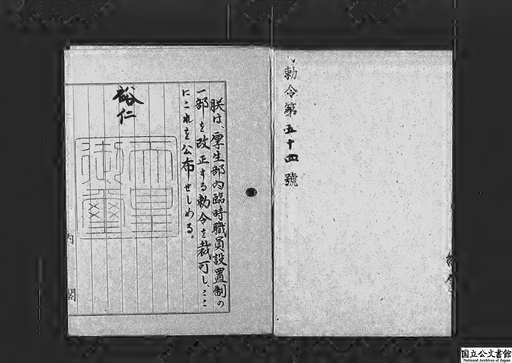 勅令第五十四號
朕は、厚生部内臨時職員設置制の
一部を改正する勅令を裁可し、ここ
にこれを公布せしめる。
裕仁
天皇
御璽
内閣
国立公文書館
National Archives of Japan